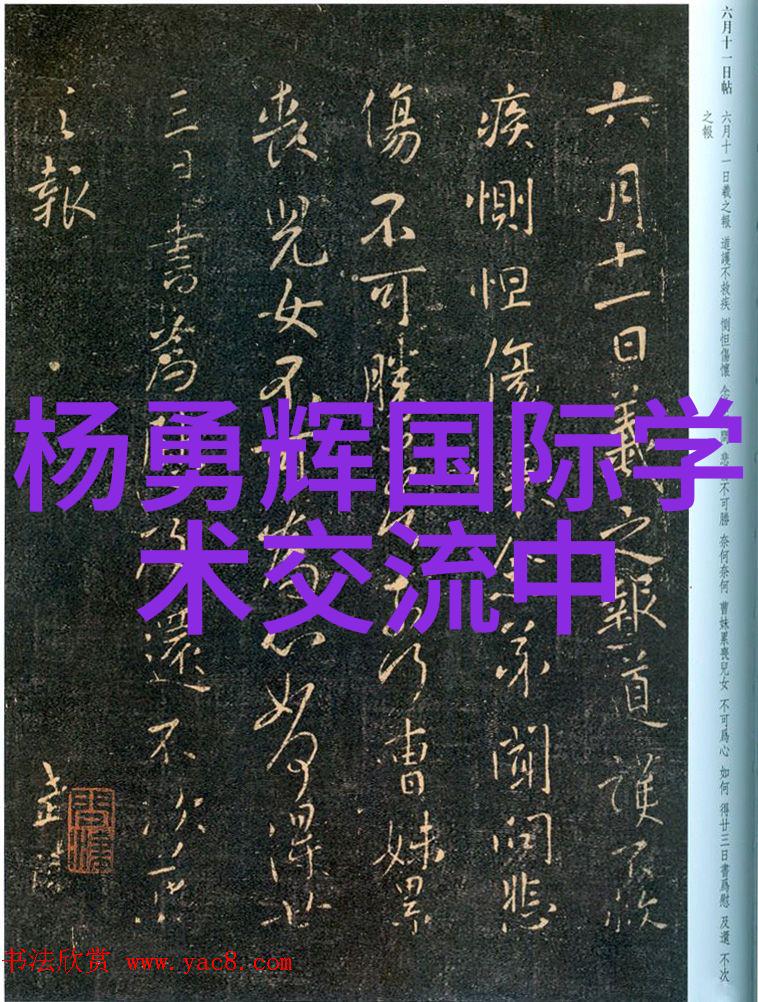 六月十一日帖
六月十一日羲之報 道護不救疾 惻怛傷懷 悲 不可勝 奈何奈何 曹妹累喪兒女 不可爲心 如何 得廿三日書爲慰 及還 不次
之報
六月十一日羲之報道護不救
疾惻怛傷弟聞問悲
傷不可勝曹妹累
喪兒女不可爲心如何得廿
三日書爲慰及還不次羲
之報
杨勇辉国际学
术交流中
书法欣赏 www.yac8.com